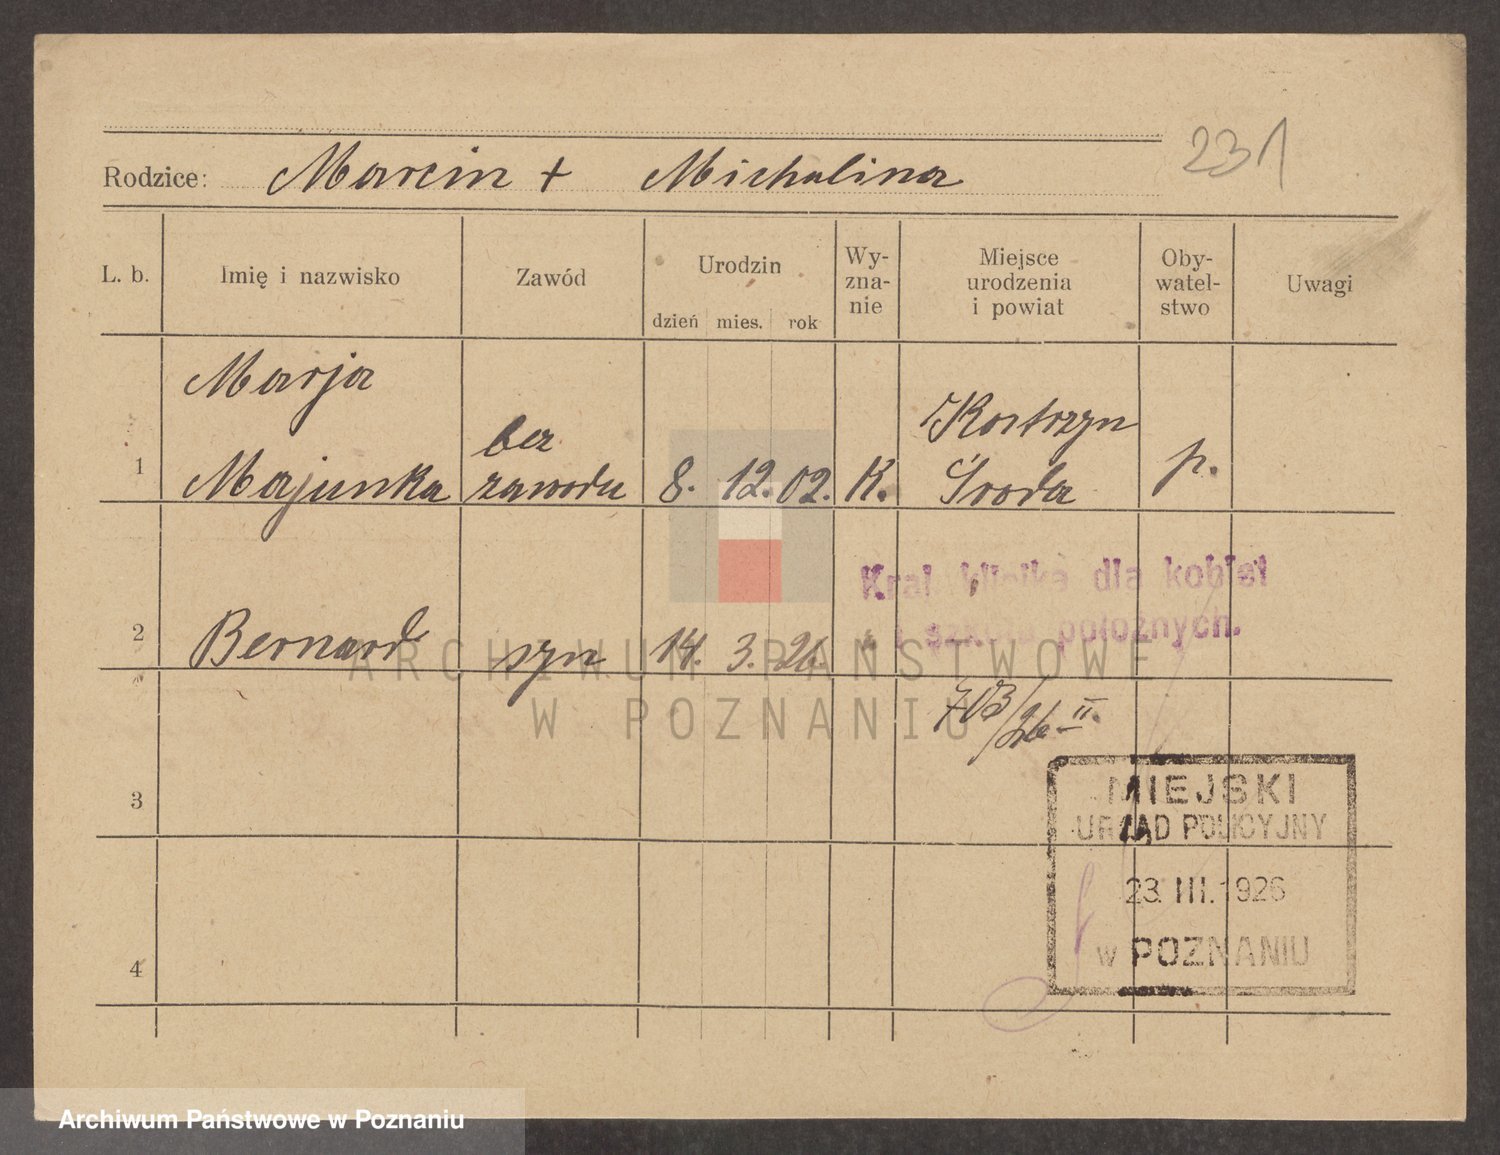 231
Rodzice: Marcin + Michalina
L. b. Imię i nazwisko Zawód Urodzin dzień mies. rok Wy-zna-nie Miejsce urodzenia i powiat Oby-watel-stwo Uwagi
Marja
bez Kostrzyn
1 Majunka zawodu 8. 12. 02. K. Środa p.
Kral. klinika dla kobiet
i szkoła położnych.
2 Bernard syn 14. 3. 26.
703/26 II.
3
MIEJSKI
URZĄD POLICYJNY
23. III. 1926
w POZNANIU
4
ARCHIWUM PAŃSTWOWE
W POZNANIU
Archiwum Państwowe w Poznaniu